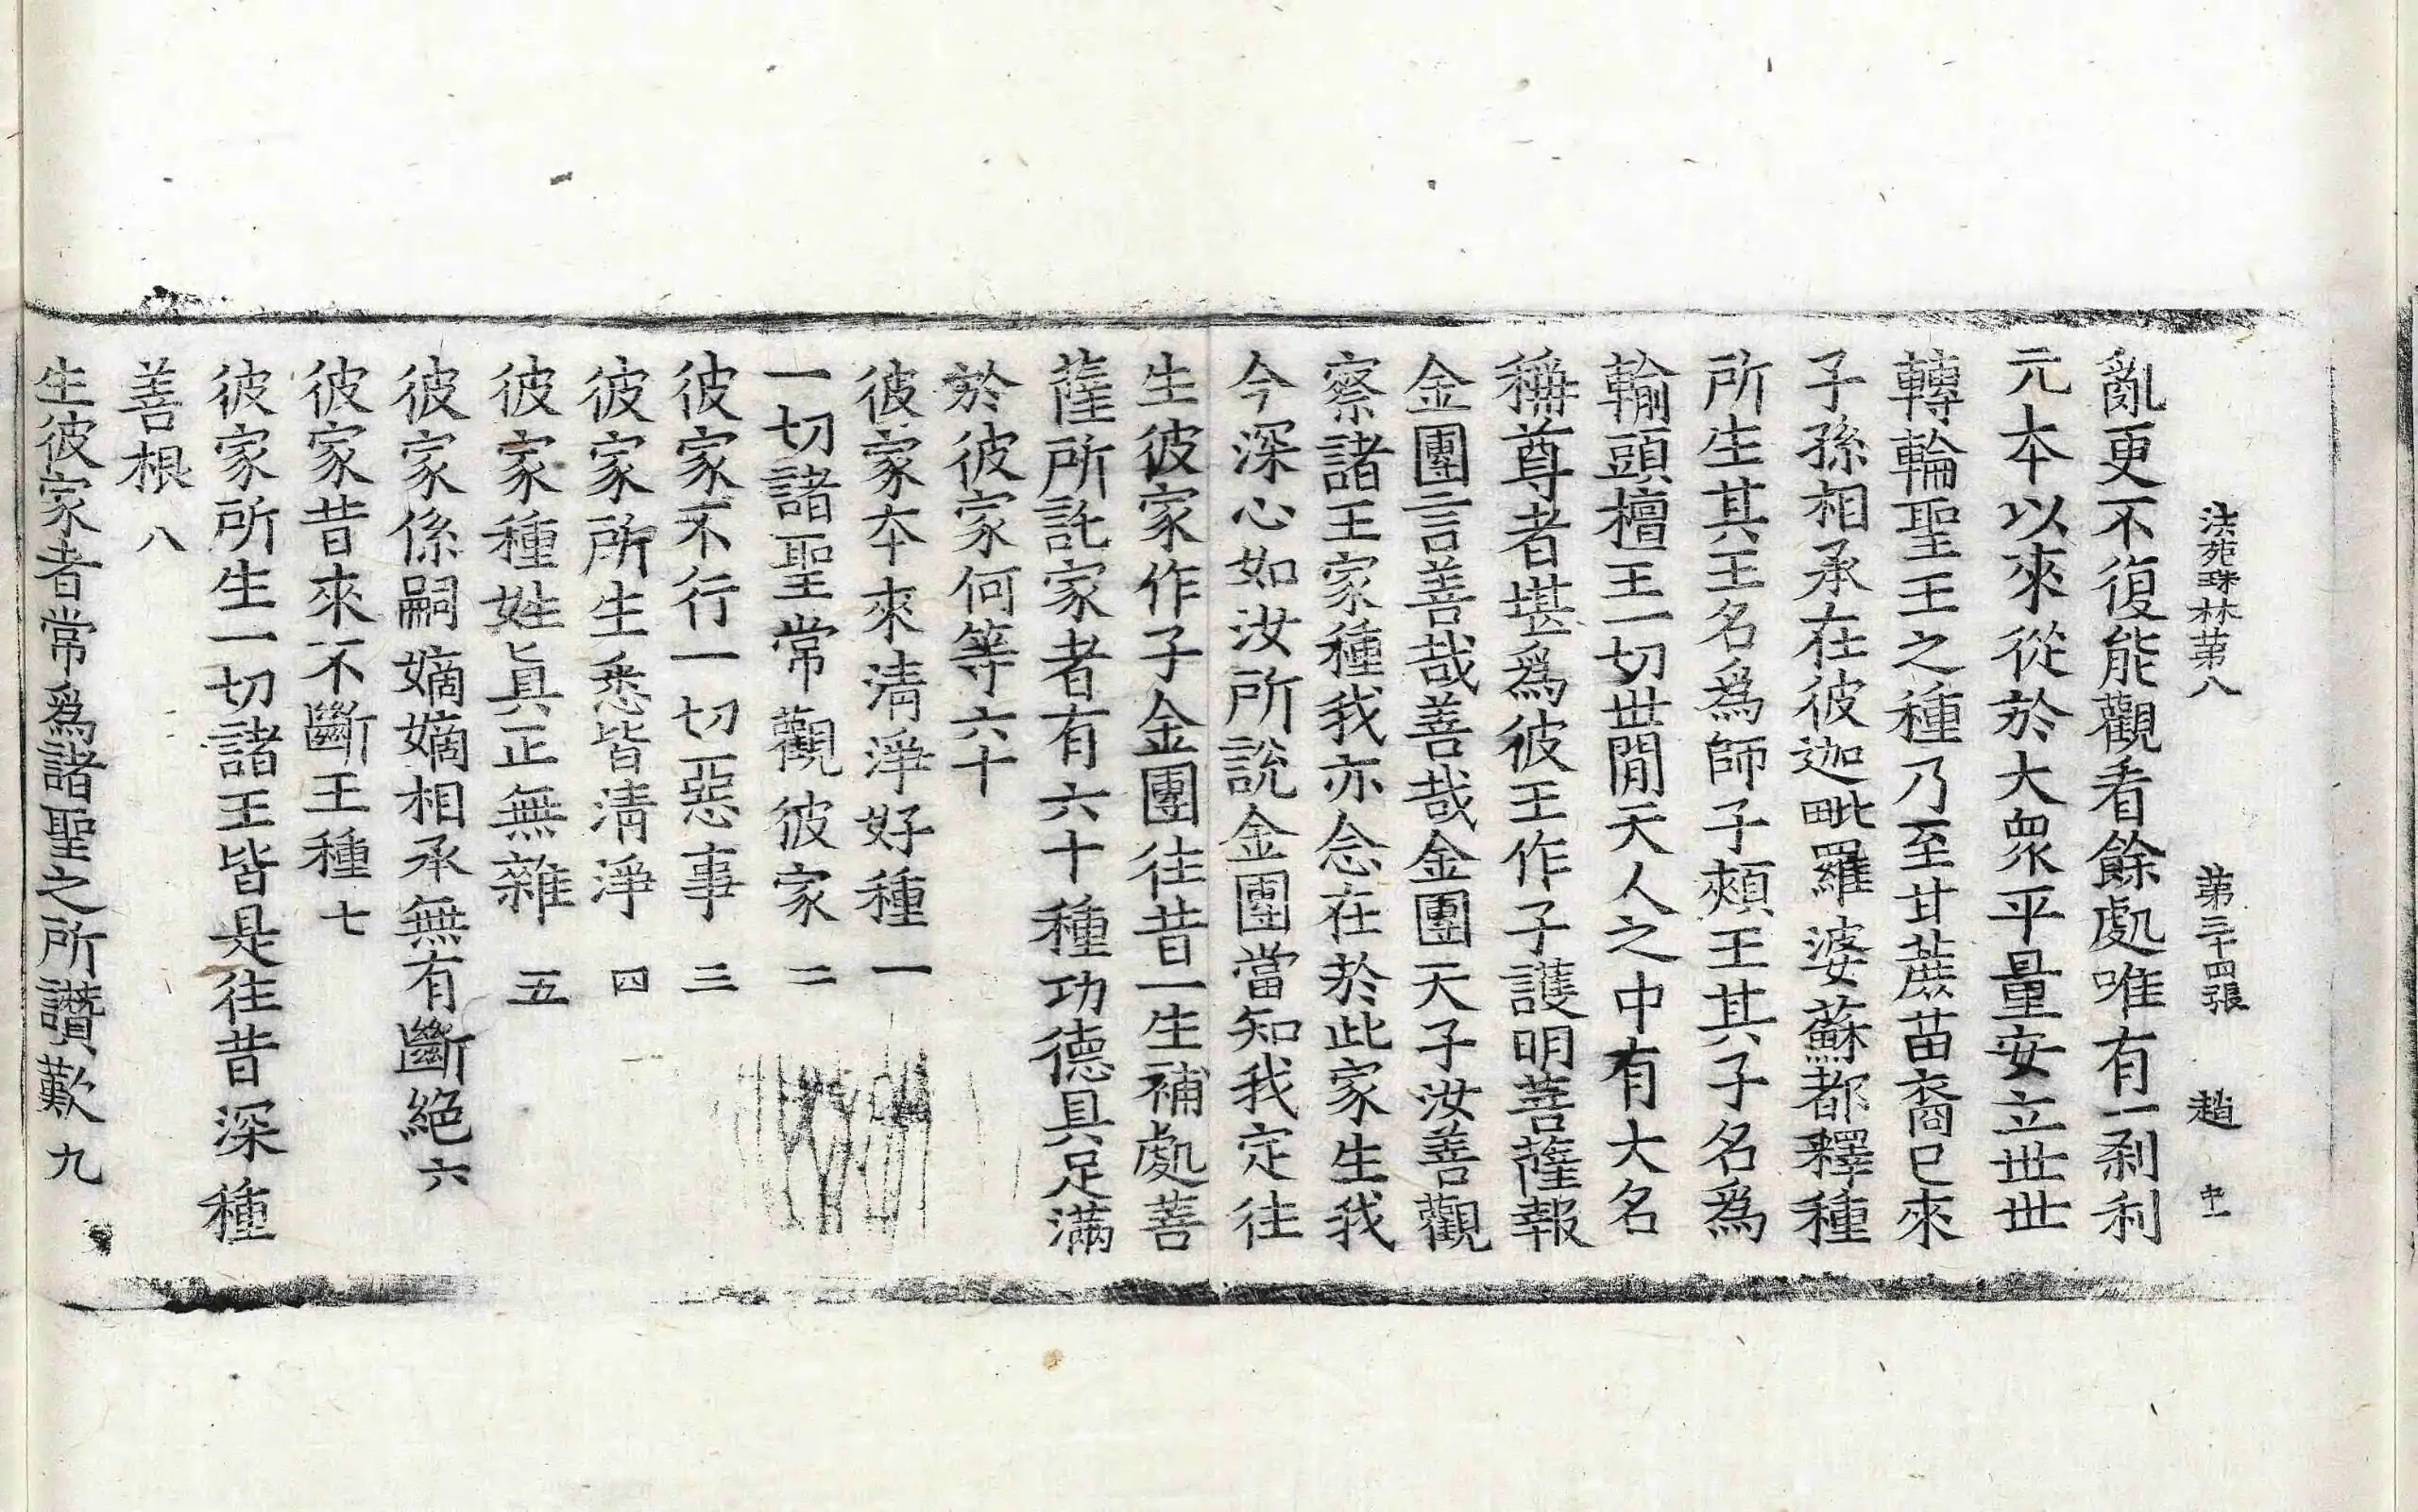 法苑珠林苐八 苐三十四張 趙
亂更不復能觀看餘處唯有一刹利
元本以來從於大衆平量安立丗丗
轉輪聖王之種乃至甘蔗苗裔已來
子孫相承在彼迦毗羅婆蘇都釋種
所生其王名爲師子頰王其子名爲
輸頭檀王一切丗閒天人之中有大名
稱尊者堪爲彼王作子護明菩薩報
金團言善哉善哉金團天子汝善觀
察諸王家種我亦念在於此家生我
今深心如汝所說金團當知我定往
生彼家作子金團往昔一生補處菩
薩所託家者有六十種功德具足滿
於彼家何等六十
彼家夲來清淨好種 一
一切諸聖常觀彼家 二
彼家不行一切惡事 三
彼家所生悉皆清淨 四
彼家種姓眞正無雜 五
彼家係嗣嫡嫡相承無有斷絕 六
彼家昔來不斷王種 七
彼家所生一切諸王皆是往昔深種
善根 八
生彼家者常爲諸聖之所讚歎 九